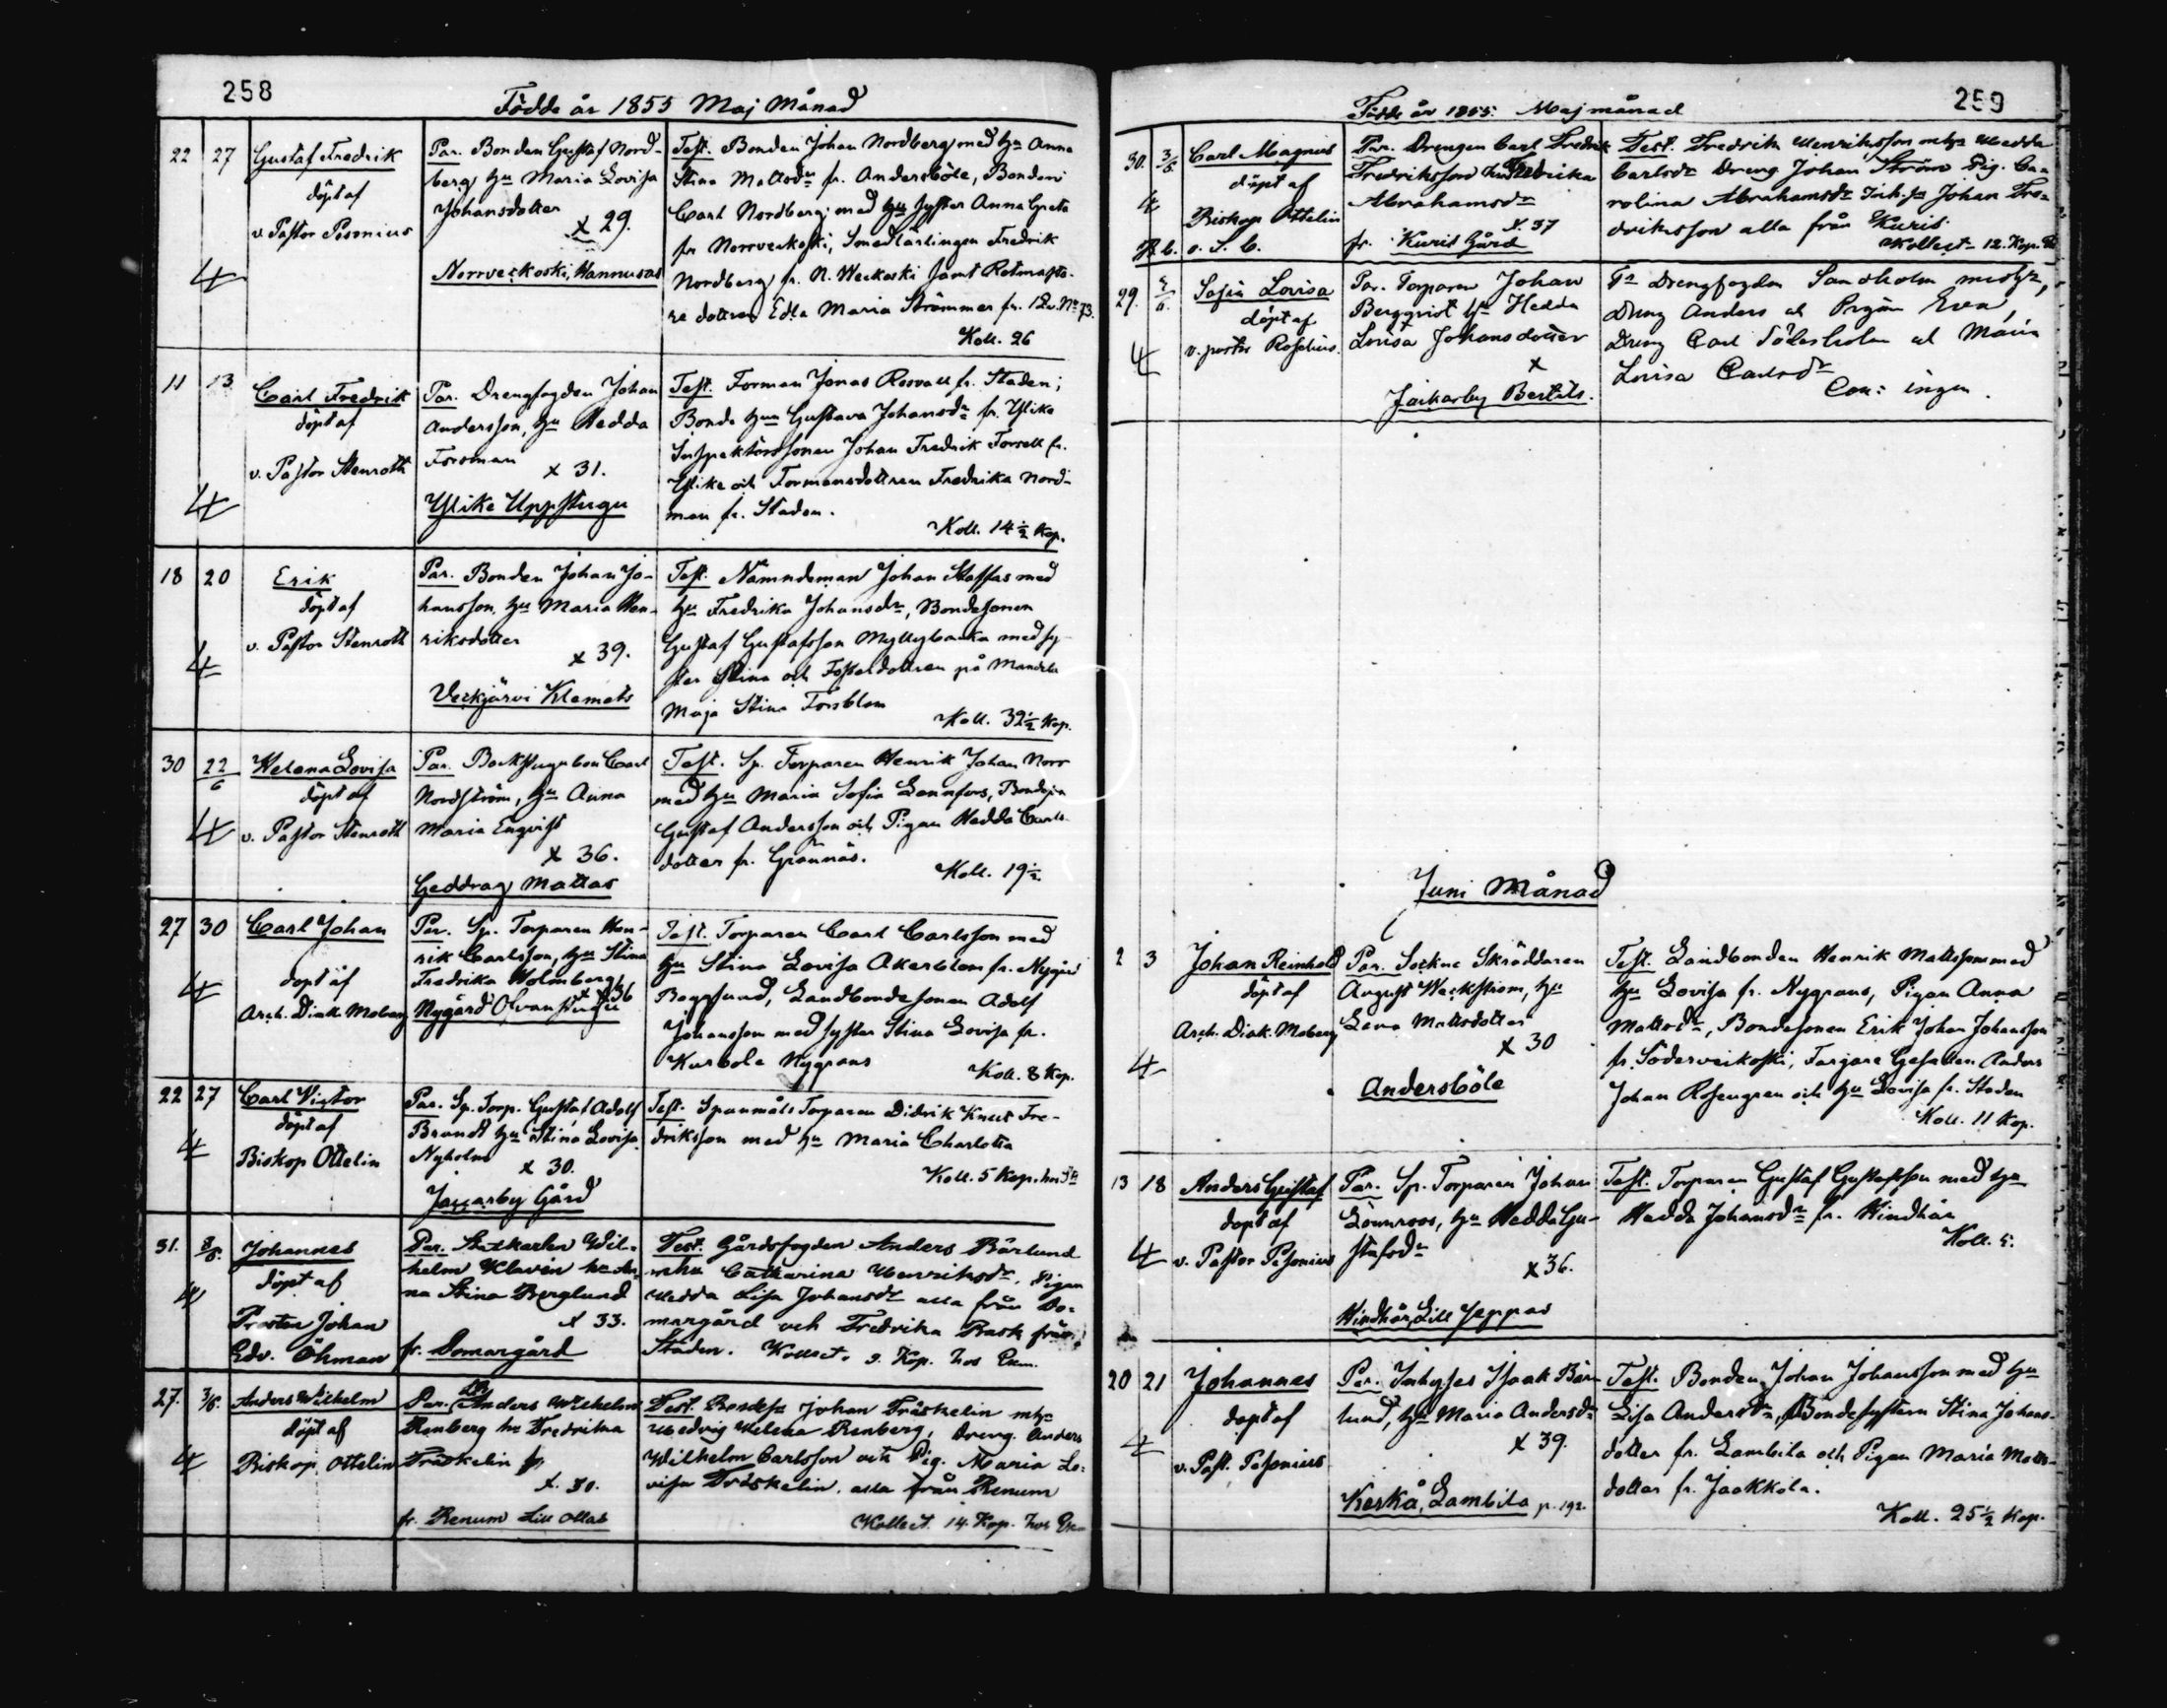 258
Födde år 1855 Maj Månad
22 27 Gustaf Fredrik
döpt af
v. Pastor Pesonius
4
Par. Bonden Gustaf Nord-
berg hu Maria Lovisa
Johansdotter
x 29.
Norrveckoski, Hannusas
Test. Bonden Johan Nordberg med hu Anna
Stina Mattsdr fr. Andersböle, Bonden
Carl Nordberg med hu syster Anna Greta
fr Norrveckoski, Smedlärlingen Fredrik
Nordberg fr. N. Weckoski samt Rotmästa-
re dottren Edla Maria Strömmer fr. No 73.
Koll. 26
11 13 Carl Fredrik
döpt af
v. Pastor Stenroth
4
Par. Drengfogden Johan
Andersson, hu Hedda
Forsman
x 31.
Ylike Uppstugu
Test. Forman Jonas Rosvall fr. Staden;
Bonde hun Gustava Johansdr fr. Ylike
Inspektorssonen Johan Fredrik Forsell fr.
Ylike och Formansdottren Fredrika Nord-
man fr. Staden.
Koll. 14 ½ Kop.
18 20 Erik
döpt af
v. Pastor Stenroth
4
Par. Bonden Johan Jo-
hansson, hu Maria Hen-
riksdotter
x 39.
Veckjärvi Klemets
Test. Nämndeman Johan Staffas med
hu Fredrika Johansdr, Bondesonen
Gustaf Gustafsson Myllybacka med sy-
ster Stina och Fosterdottren på
Maja Stina Forsblom
Koll. 32½ Kop.
30 22/6 Helena Lovisa
döpt af
v. Pastor Stenroth
4
Par. Backstugubon Carl
Nordström, hu Anna
Maria Enqvist
x 36.
Geddrag Mattas
Test. Sp. Torparen Henrik Johan Norr
med hu Maria Sofia Lennfors, Bondesn
Gustaf Andersson och Pigan Hedda Carls-
dotter fr. Grännäs.
Koll. 19½.
27 30 Carl Johan
döpt af
Arch. Diak. Moberg
4
Par. Sp. Torparen Hen-
rik Carlsson, hu Stina
Fredrika Holmberg
x 36
Nygård Ofvanstugu
Test. Torparen Carl Carlsson med
hu Stina Lovisa Akerblom fr. Nygård
Boggsund, Landbondesonen Adolf
Johansson med syster Stina Lovisa fr.
Kurbole Nygrans
Koll. 8 Kop.
22 27 Carl Victor
döpt af
Biskop Ottelin
4
Par. Sp. Torp. Gustaf Adolf
Brandt hu Stina Lovisa
Nyholm
x 30.
Jackarby Gård
Test. Spanmåls Torparen Didrik Knut Fre-
driksson med hu Maria Charlotta
Koll. 5 Kop.
31. Johannes
döpt af
Prosten Johan
Edv. Öhman
4
Par. Wil-
helm Klavér hu An-
na Stina Berglund
x 33.
fr. Domargård
Test. Gårdsfogden Anders Bärlund
mhu Catharina Henriksdr, Pigan
Hedda Lisa Johansdr alla från Do-
margård och Fredrika Rask från
Staden. Kollect. 9. Kop. hos
27. 3/6. Anders Wilhelm
döpt af
Biskop Ottelin
4
Par. Anders Wilhelm
Renberg hu Fredrika
Träskelin
x. 30.
fr. Renum Lill Ollas
Test. Bondes. Johan Träskelin mhu
Hedvig Helena Renberg, Dreng. Anders
Wilhelm Carlsson och Pig. Maria Lo-
visa Träskelin. alla från Renum
Kollect. 14. Kop. hos
259
Födde år 1855. Maj månad
30. 3/6 Carl Magnus
döpt af
Biskop Ottelin
4
Par. Drengen Carl Fredrik
Fredriksson hu Fredrika
Abrahamsdr
x. 37
fr. Kuris Gård
Test. Fredrik Henriksson mhu Hedda
Carlsdr Dreng Johan Ström Pig. Ca-
rolina Abrahamsdr Inh. sn Johan Fre-
driksson alla från Kuris.
Kollect 12. Kop.
29. Sofia Lovisa
döpt af
v. pastor Roschius.
4
Par. Torparen Johan
Bergqvist hu Hedda
Lovisa Johansdotter
x
Jackarby Bertils.
Drengfogden Sandholm med hu,
Dreng Anders och Pigan Eva,
Dreng Carl Söderholm och Maria
Lovisa Carlsdr
ingen.
Juni Månad
2 3 Johan Reinhold
döpt af
Arch. Diak. Moberg
4
Par. Sockne Skräddaren
August Weckström, hu
Lena Mattsdotter
x 30
Andersböle
Test. Landbonden Henrik Mattsson med
hu Lovisa fr. Nygrans, Pigan Anna
Mattsdr, Bondesonen Erik Johan Johansson
fr. Söderveikoski, Fargare Gesellen Anders
Johan Rosengren och hu Lovisa fr. Staden
Koll. 11 Kop.
13 18 Anders Gustaf
döpt af
v. Pastor Pesonius
4
Par. Sp. Torparen Johan
Lönnroos, hu Hedda Gu-
stafsdr
x 36.
Hindhår, Lill Jeppas
Test. Torparen Gustaf Gustafsson med hu
Hedda Johansdr fr. Hindhår
Koll. 5.
20 21 Johannes
döpt af
v. Past. Pesonius
4
Par. Inhyses Isaak Bär-
lund, hu Maria Andersdr
x 39.
Kerkå, Lambila p. 192.
Test. Bonden Johan Johansson med hu
Lisa Andersdr, Bondesystern Stina Johans-
dotter fr. Lambila och Pigan Maria Matts-
dotter fr. Jaakkola.
Koll. 25½ Kop.